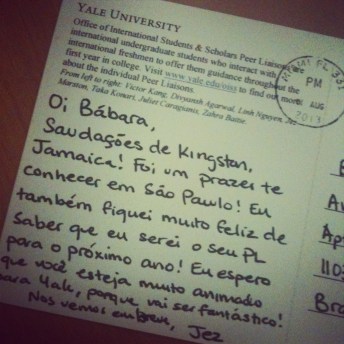 YALE UNIVERSITY
Office of International Students & Scholars Peer Liaisons are
international undergraduate students who interact with
international freshmen to offer them guidance throughout the
first year in college. Visit www.yale.edu/oiss to find out more
about the individual Peer Liaisons.
From left to right: Victor Kang, Divyansh Agarwal, Linh Nguyen, Jez
Marston, Taka Kowari, Juliet Caragianis, Zahra Baitie.
MIAMI FL 331
PM
AUG
2013
Oi Bábara,
Saudações de Kingston,
Jamaica! Foi um prazer te
conhecer em São Paulo! Eu
também fiquei muito feliz de
saber que eu serei o seu PL
para o próximo ano! Eu espero
que você esteja muito animado
para Yale, porque vai ser fantástico!
Nos vemos em breve, Jez
B
Av
Ap
110
Bra